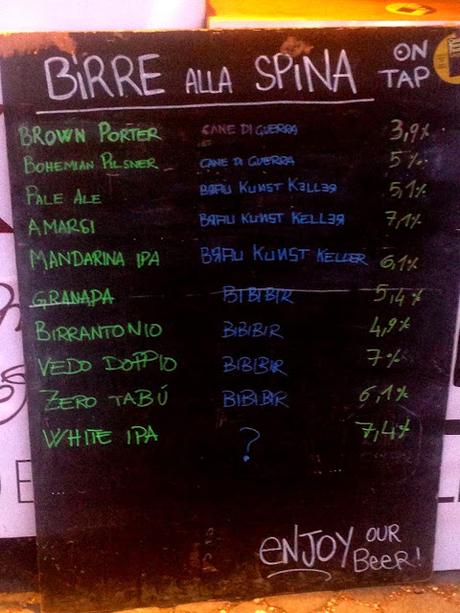 BIRRE ALLA SPINA ON TAP
BROWN PORTER CANE DI GUERRA 3,9%
BOHEMIAN PILSNER CANE DI GUERRA 5%
PALE ALE BRAU KUNST KELLER 5,1%
AMARSI BRAU KUNST KELLER 7,1%
MANDARINA IPA BRAU KUNST KELLER 6,1%
GRANADA BIBIBIR 5,4%
BIRRANTONIO BIBIBIR 4,9%
VEDO DOPPIO BIBIBIR 7%
ZERO TABÚ BIBIBIR 6,1%
WHITE IPA ? 7,4%
ENJOY OUR BEER!